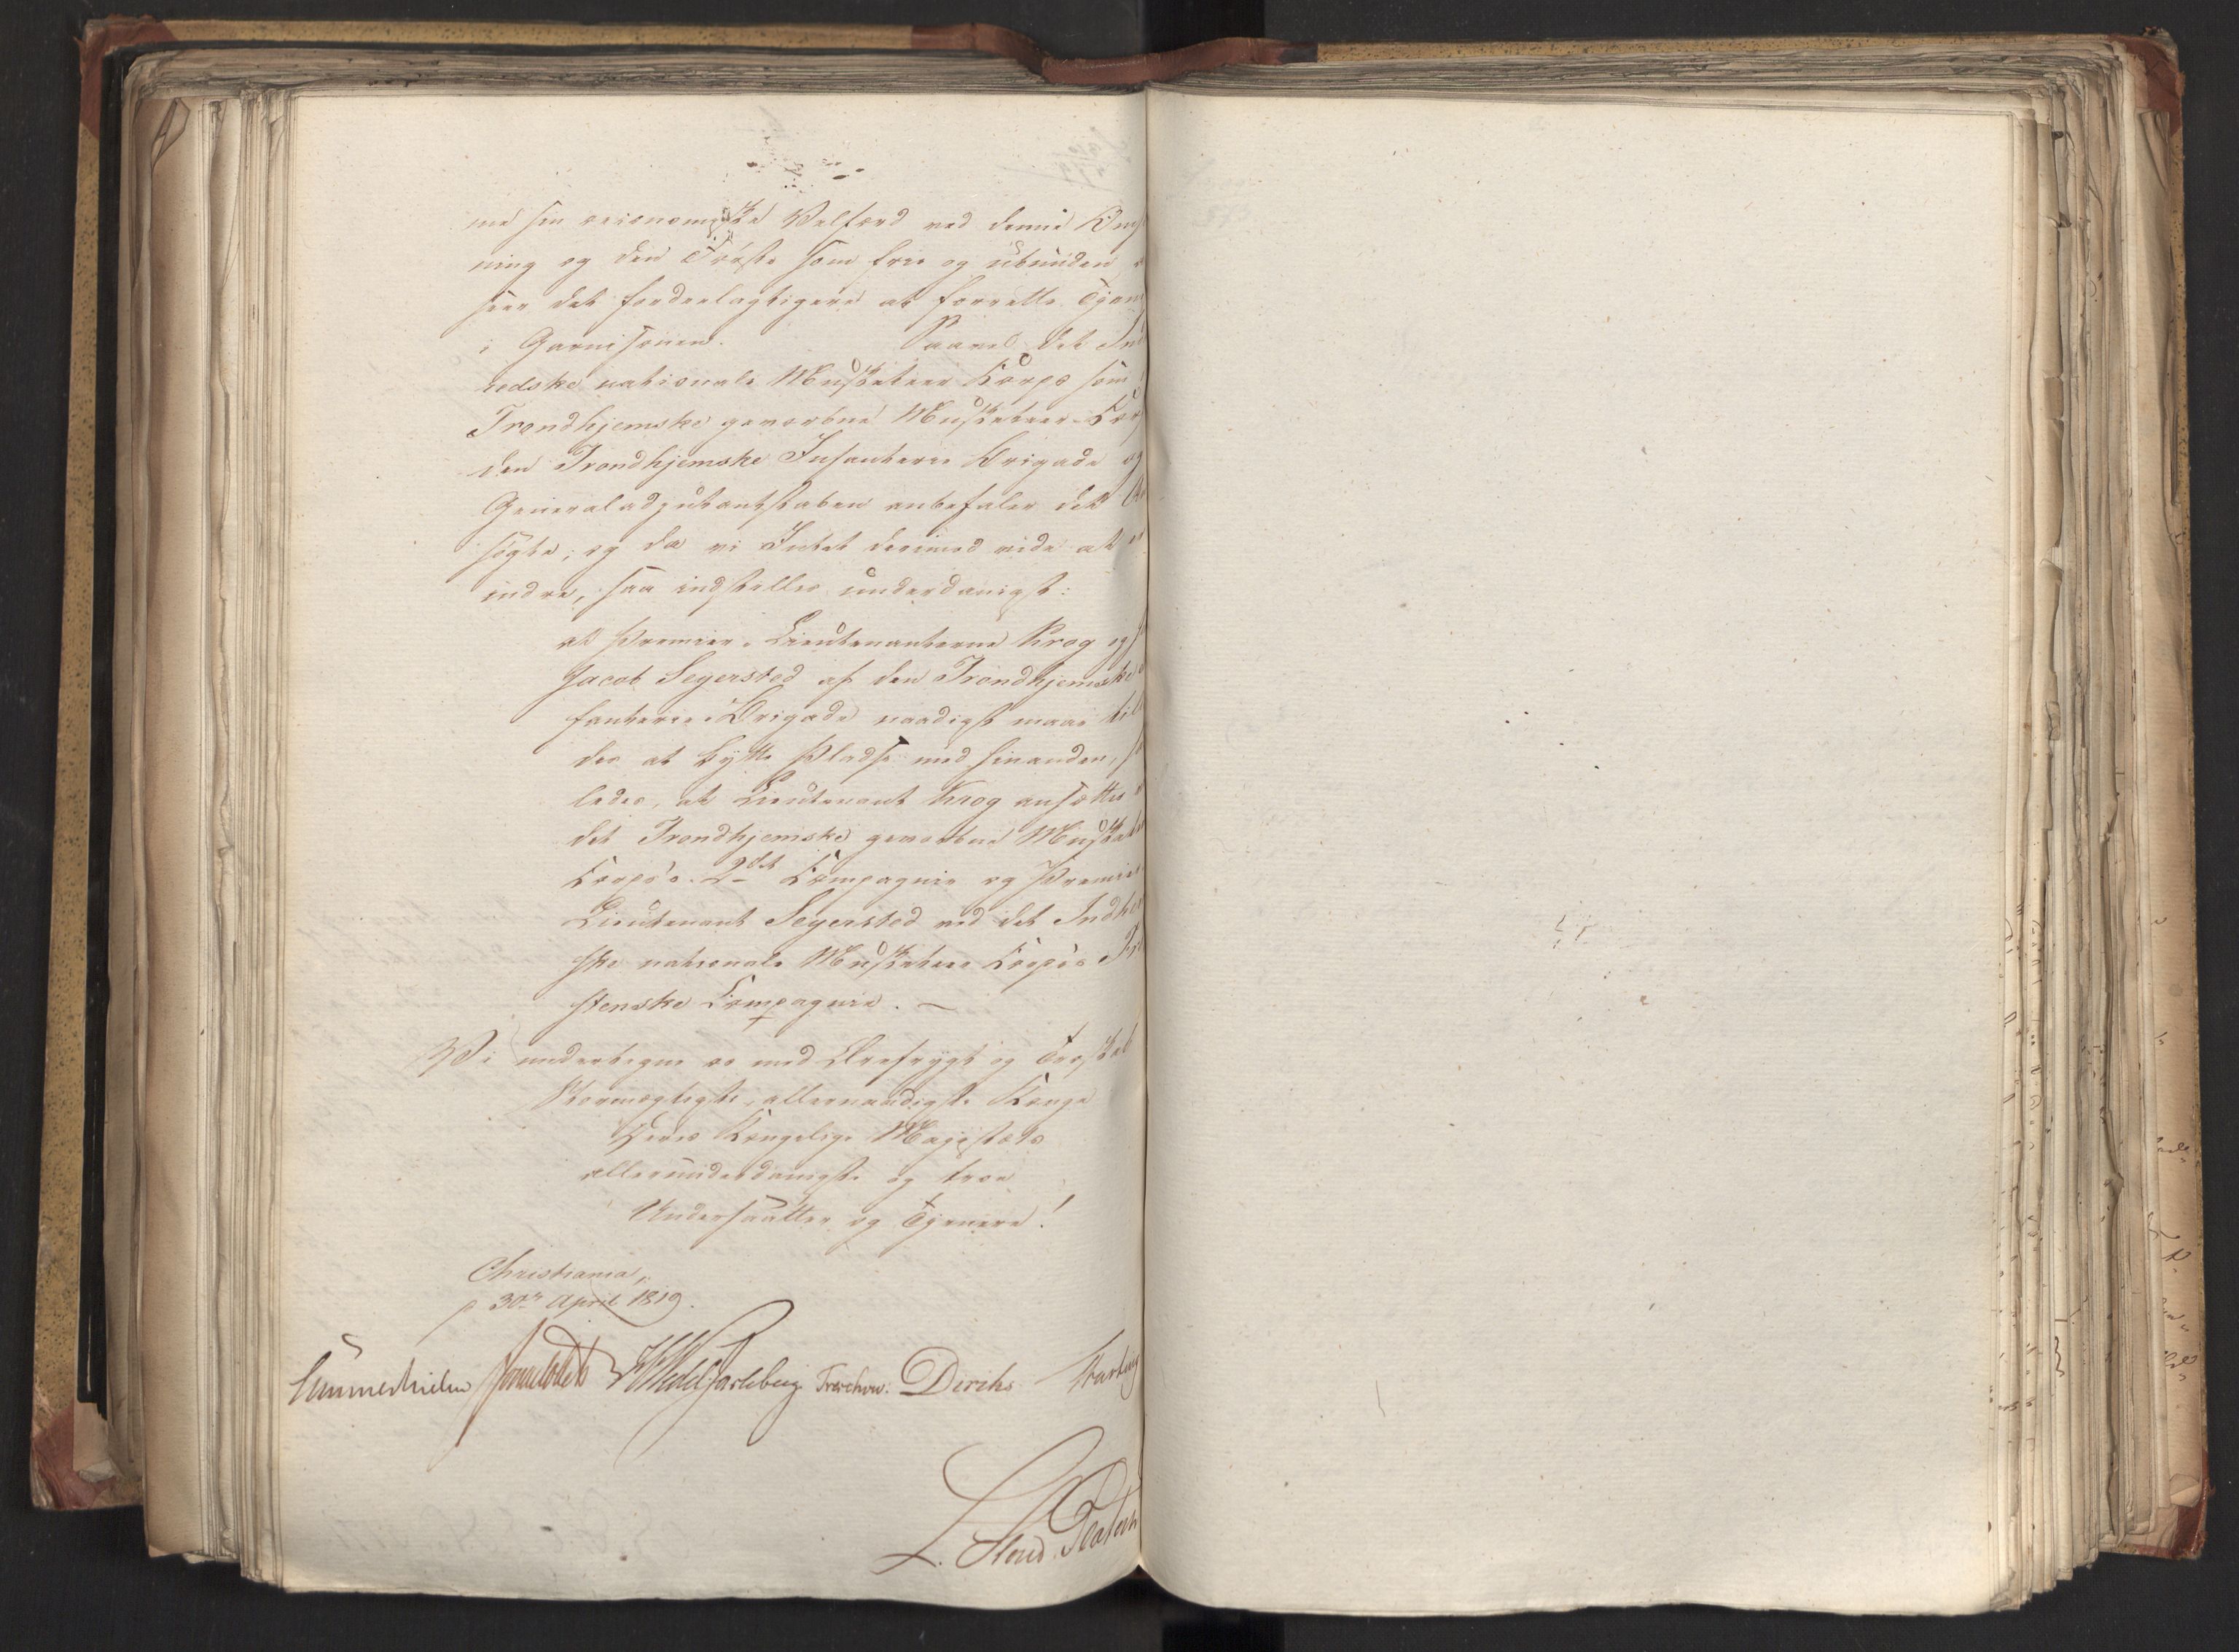 me sin oeconomiske Velfærd ved denne
ning og den Første som frie og ubunden
seer det fordeelagtigere at forrette
i Garnisonen. Saavel det
redske nationale Musketeer Corps som
Trondhjemske gevorbne Musketeer
den Trondhjemske Infanterie Brigade og
Generaladjutantstaben anbefaler det
søgte; og da vi Intet derimod vide at
indre, saa indstilles underdanigst:
at Premier-Lieutenanterne Krog og
Jacob Segersted af den Trondhjemske
fanterie-Brigade naadigst maae
des at bytte Pladse med hinanden,
ledes, at Lieutenant Krog ansættes
det Trondhjemske gevorbne
Corps's 2det Compagnie og Premier
Lieutenant Segersted ved det
ske nationale Musketeer Corps's
stenske Compagnie. —
Vi undertegne os med Ærefrygt og Troskab
Stormægtigste, allernaadigste Konge
Deres Kongelige Majestæts
allerunderdanigste og troe
Undersaatter og Tjenere!
Christiania,
d 30te April 1819.
Sommerhielm WedelJarlsberg Treschow. Diriks
L.